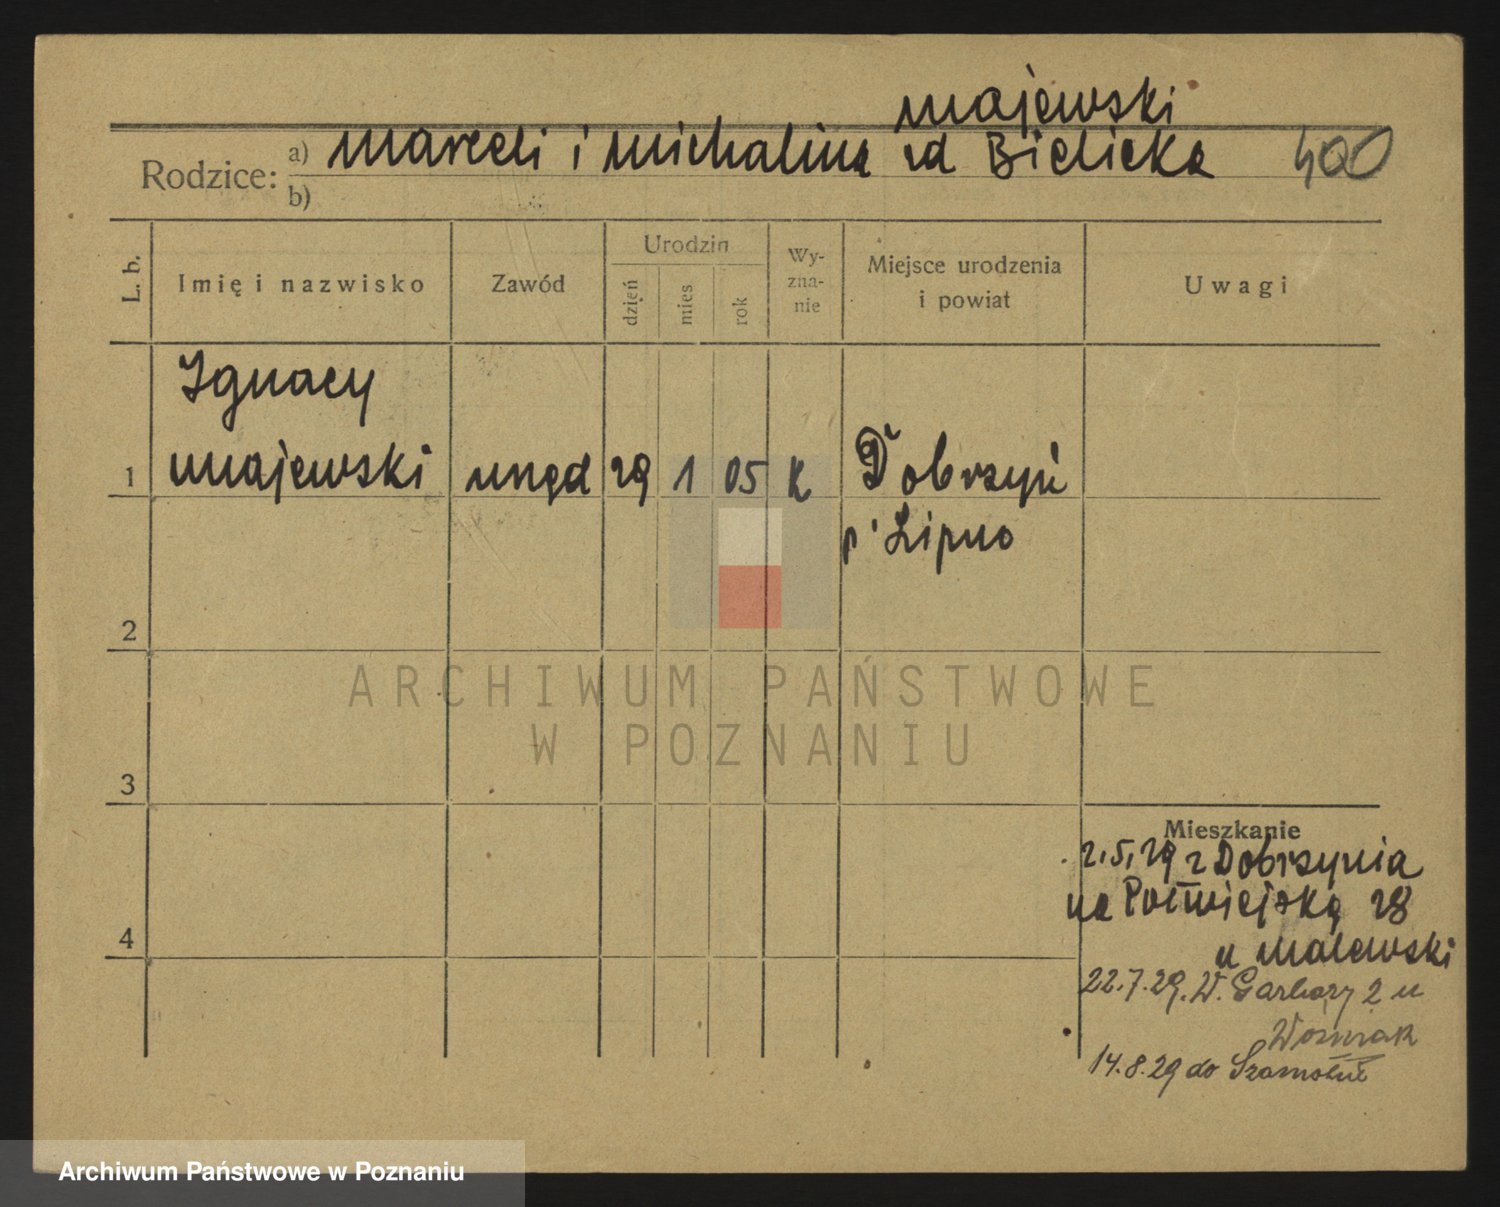 Majewski
Rodzice: a) Marceli i Michalina zd Bielicka 400
b)
L. b. Imię i nazwisko Zawód Urodzin dzień mies rok Wyznanie Miejsce urodzenia i powiat Uwagi
Ignacy
1 Majewski urzęd 29 1 05 K Dobrzyń
p. Lipno
2
ARCHIWUM PAŃSTWOWE
W POZNANIU
3
Mieszkanie
2.5.29 z Dobrzynia
na Półwiejską 28
4
u Malewski
22.7.29. W. Garbary 2 u
Wozniak
14.8.29 do Szamotuł
Archiwum Państwowe w Poznaniu